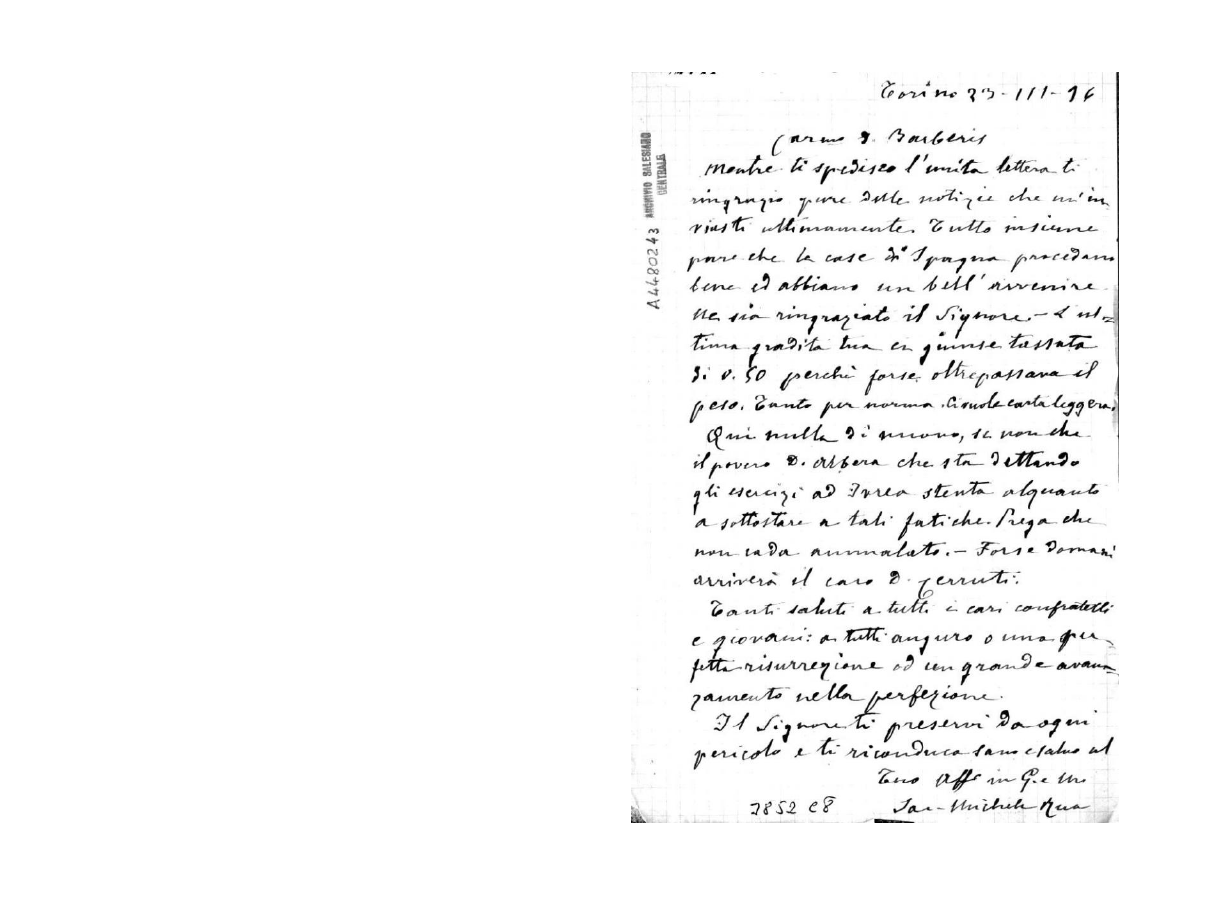 Torino 23-III-96
Carmo D. Barberis
Mentre ti spedisco l'unita lettera ti
ringrazio pure delle notizie che m'in
viasti ultimamente. Tutto insieme
pare che le case di Spagna procedano
bene ed abbiano un bell'avvenire
Ne sia ringraziato il Signore. - L'ul=
tima gradita tua ci giunse tassata
di 0.50 perchè forse oltrepassava il
peso. Tanto per norma. Ci vuole carta leggera.
Qui nulla di nuovo, se non che
il povero D. Albera che sta dettando
gli esercizi ad Ivrea stenta alquanto
a sottostare a tali fatiche. Prega che
non cada ammalato. - Forse domani
arriverà il caro D. Cerruti.
Tanti saluti a tutti i cari confratelli
e giovani: a tutti auguro o una per
fetta risurrezione od un grande avan=
zamento nella perfezione.
Il Signore ti preservi da ogni
pericolo e ti riconduca sano e salvo al
Tuo Aff in G. e M.
Sac. Michele Rua
A4480243 ARCHIVIO SALESIANO
CENTRALE